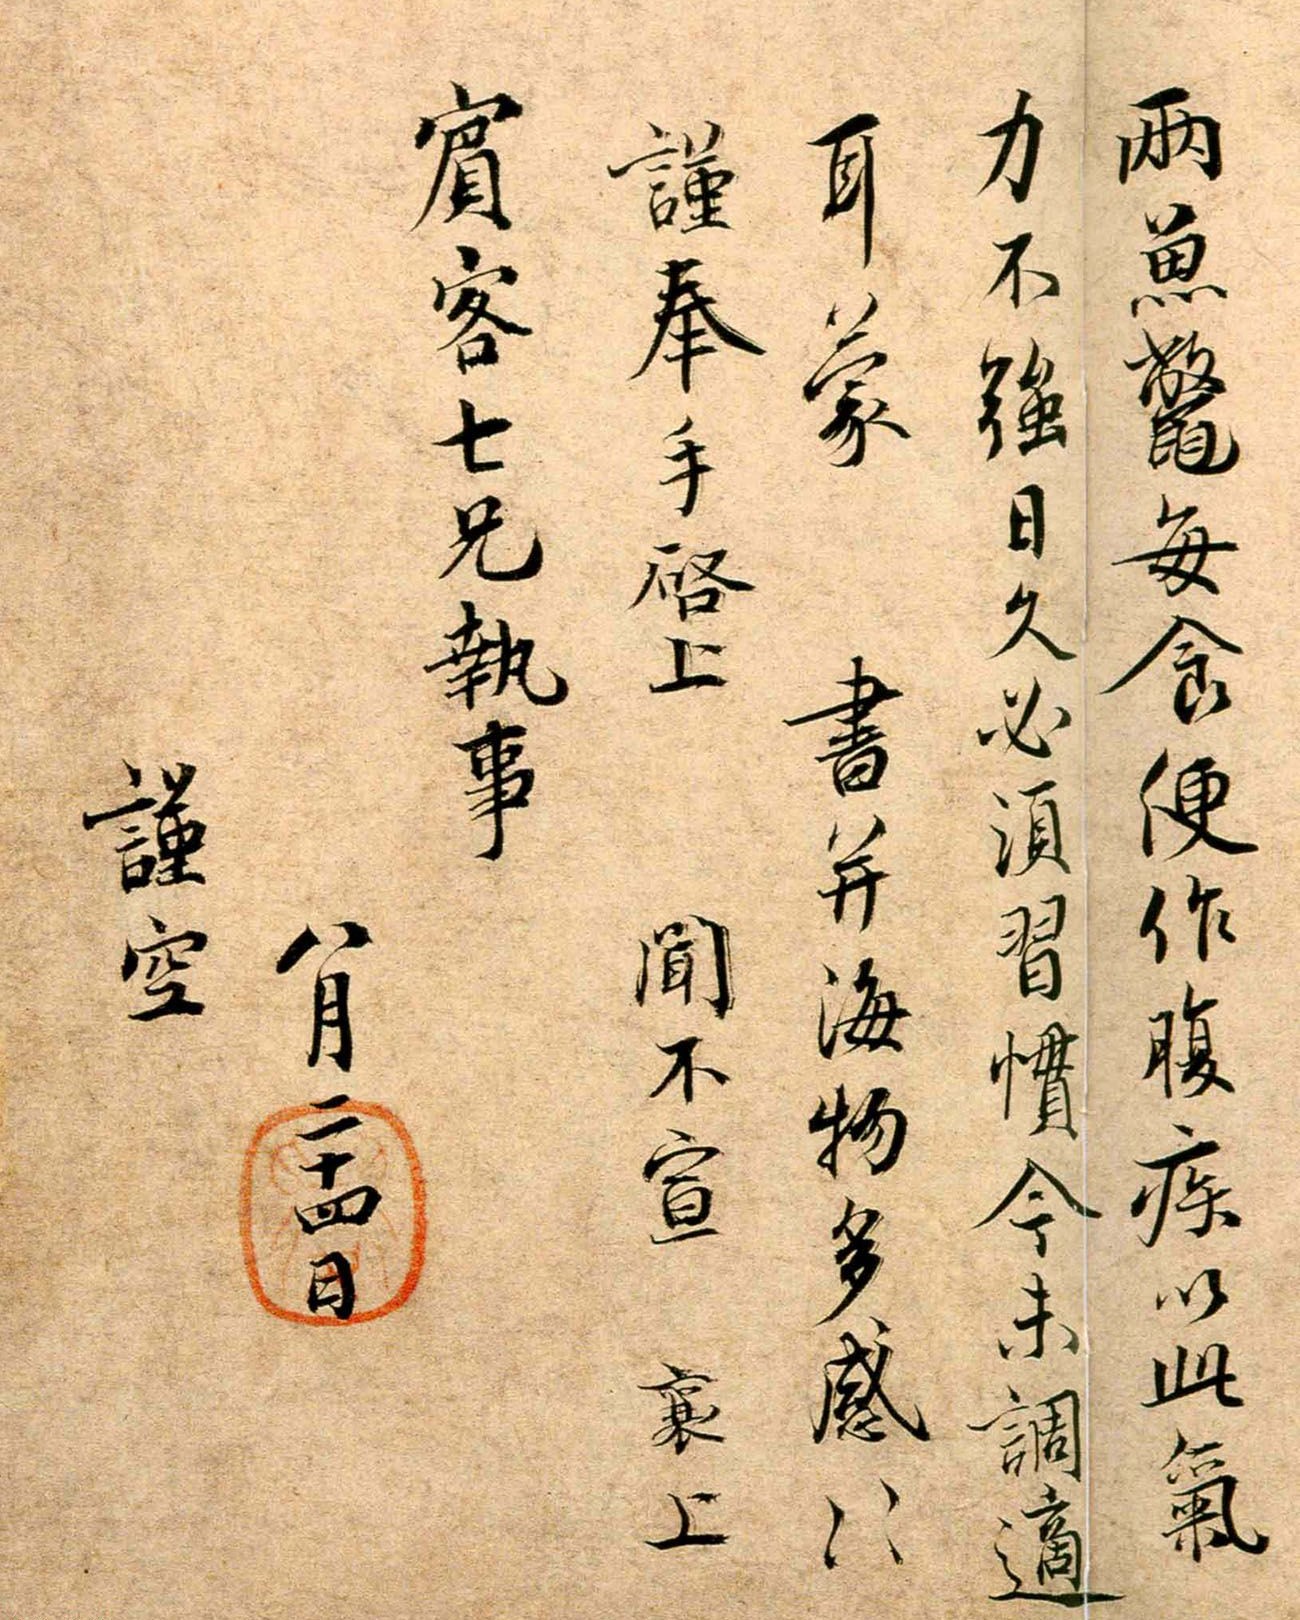 兩魚鼈每食便作腹疾以此氣
力不強日久必須習慣今未調適
耳蒙 書并海物多感〻
謹奉手啓上 聞不宣 襄上
賓客七兄執事
八月二十四日
謹空